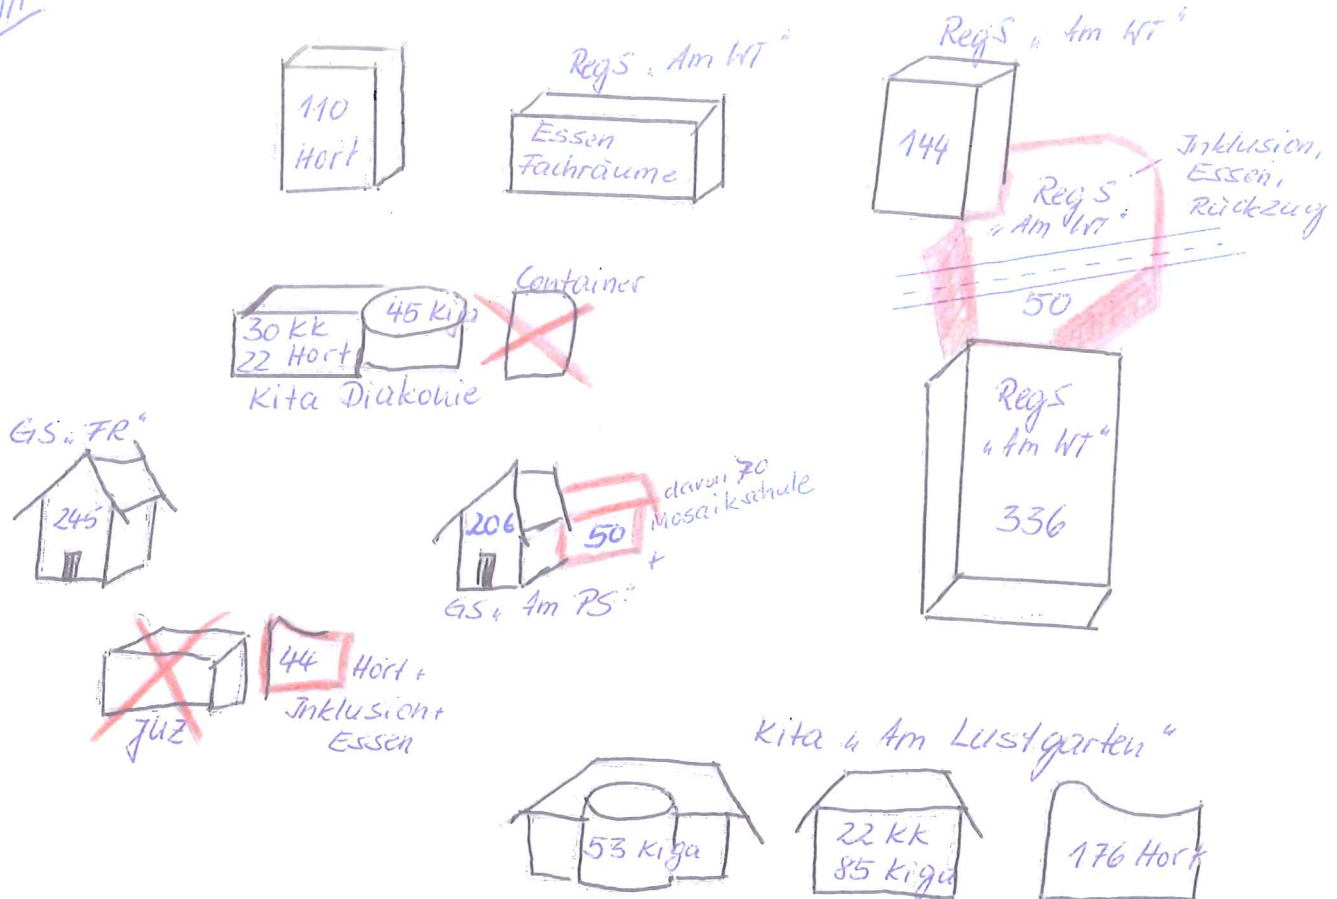 110
Hort
RegS „Am WT"
Essen
Fachräume
RegS „Am WT"
144
Inklusion,
Essen,
Rückzug
RegS
„Am WT"
50
Container
45 Kiga
30 KK
22 Hort
Kita Diakonie
RegS
„Am WT"
336
GS „FR"
245
206
50
davon 70
Mosaikschule
+
GS „Am PS"
JUZ
44
Hort +
Inklusion+
Essen
Kita „Am Lustgarten"
53 Kiga
22 KK
85 Kiga
176 Hort